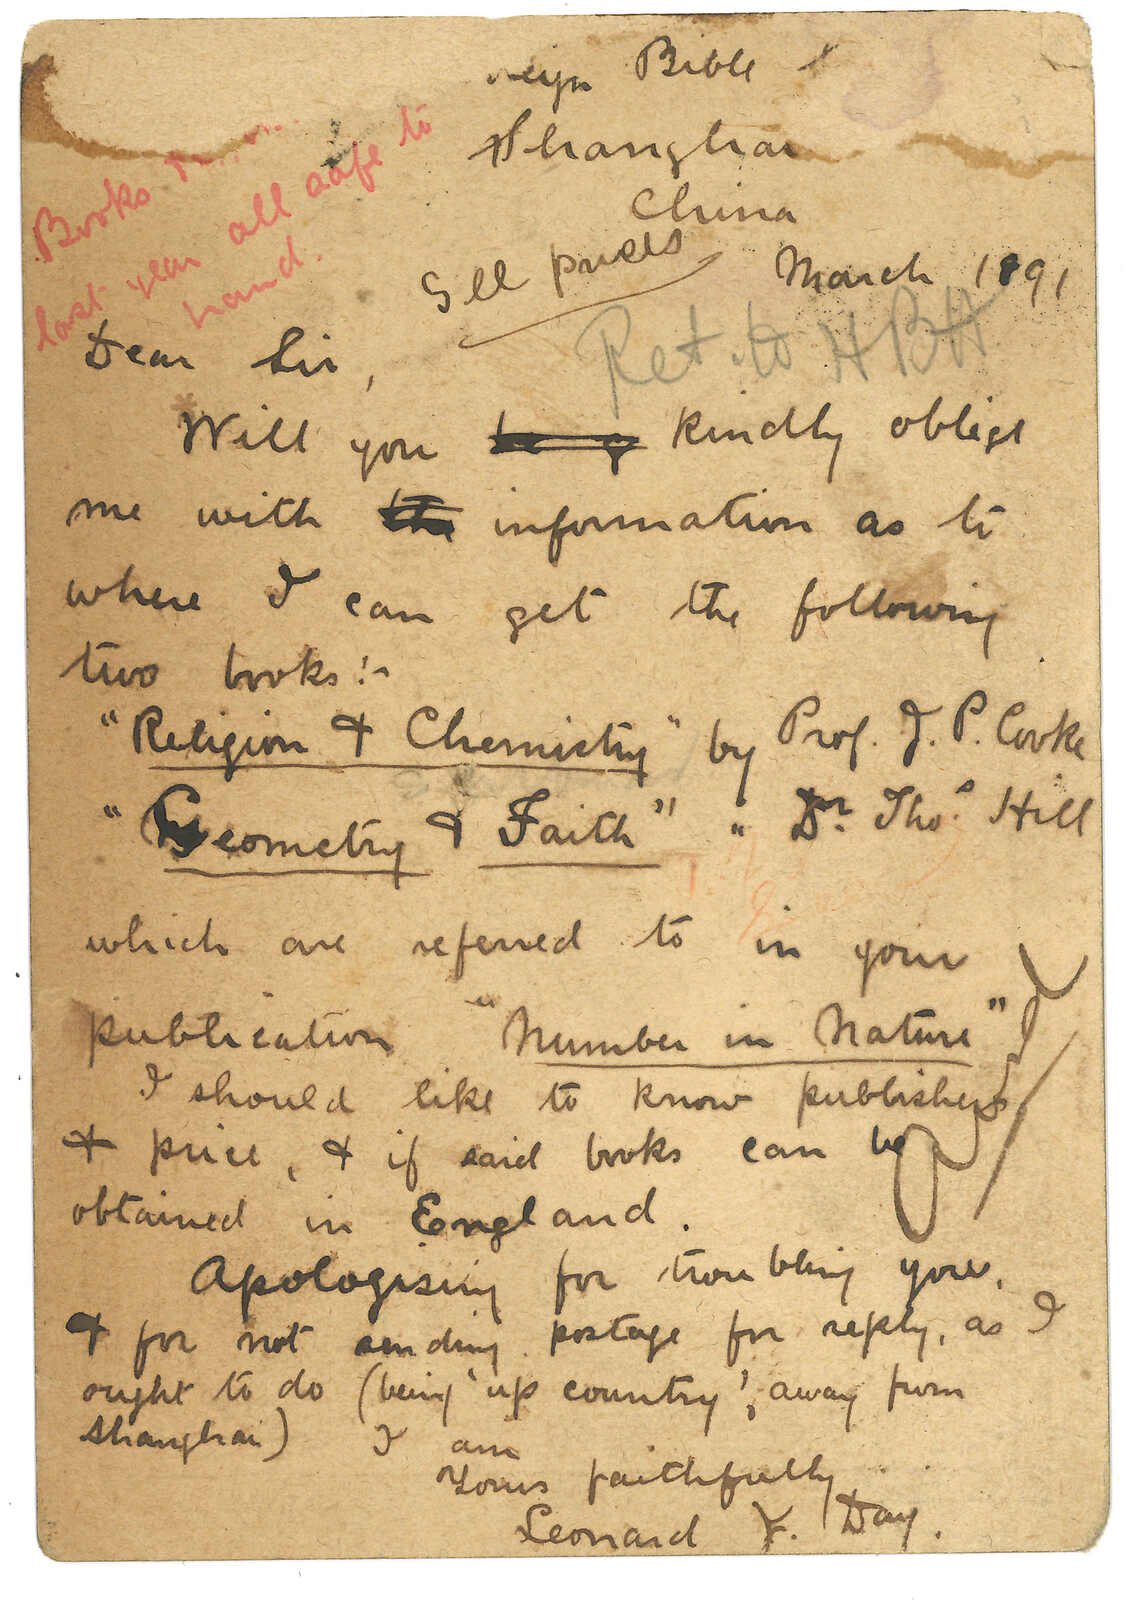 Bible
Shanghai
China
March 1891
Books
last year all safe to
hand.
Sell prices
Ret. to HBH
Dear Sir,
Will you be g kindly oblige
me with the information as to
where I can get the following
two books:-
"Religion & Chemistry" by Prof. J. P. Cooke
"Geometry & Faith" " Dr. Thos Hill
which are referred to in your
publication "Number in Nature"
I should like to know publishers
& price, & if said books can be
obtained in England.
Apologising for troubling you,
& for not sending postage for reply, as I
ought to do (being 'up country', away from
Shanghai) I am
Yours faithfully
Leonard J. Day.